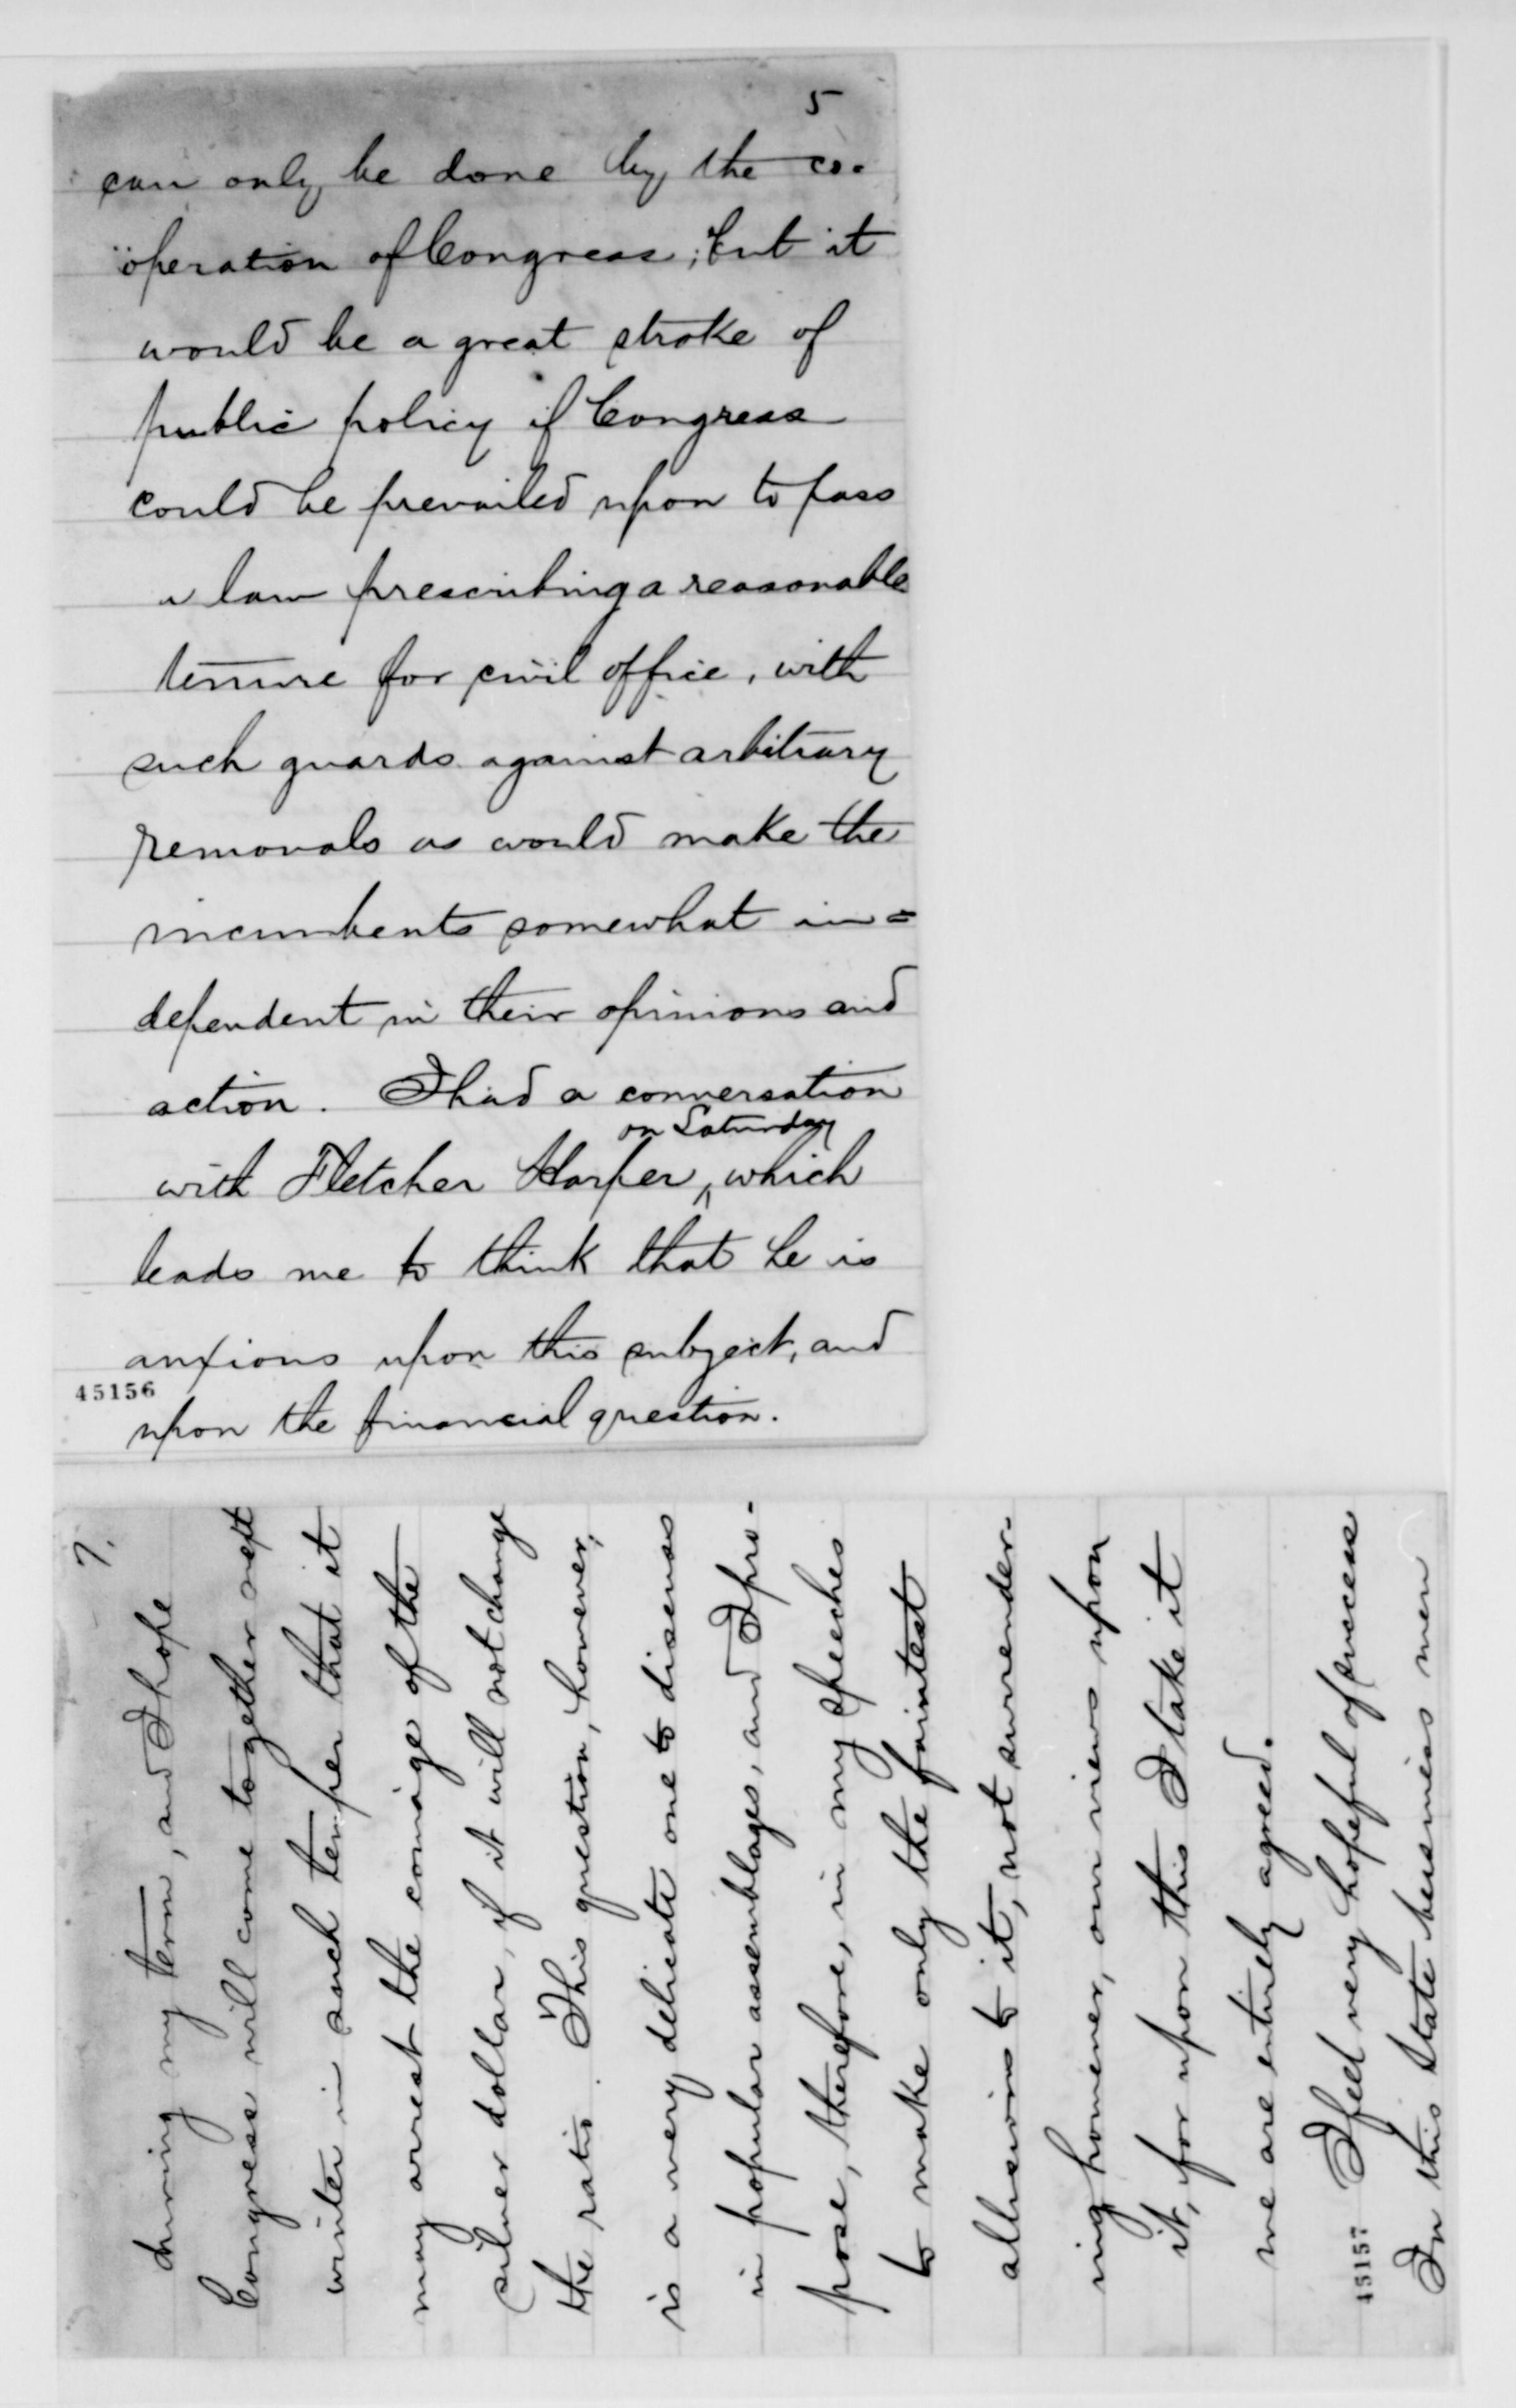 5
can only be done by the co-
öperation of Congress; but it
would be a great stroke of
public policy if Congress
could be prevailed upon to pass
a law prescribing a reasonable
tenure for civil office, with
such guards against arbitrary
removals as would make the
incumbents somewhat in=
dependent in their opinions and
action. I had a conversation
on Saturday
with Fletcher Harper, ^ which
leads me to think that he is
anxious upon this subject, and
45156
upon the financial question.
7.
during my term, and I hope
Congress will come together next
winter in such temper that it
may arrest the coinage of the
silver dollar, if it will not change
the ratio. This question, however,
is a very delicate one to discuss
in popular assemblages, and I pro-
pose, therefore, in my speeches
to make only the faintest
allusions to it, not surrender-
ing however, our views upon
it, for upon this I take it
we are entirely agreed.
I feel very hopeful of success
45157
In this State business men